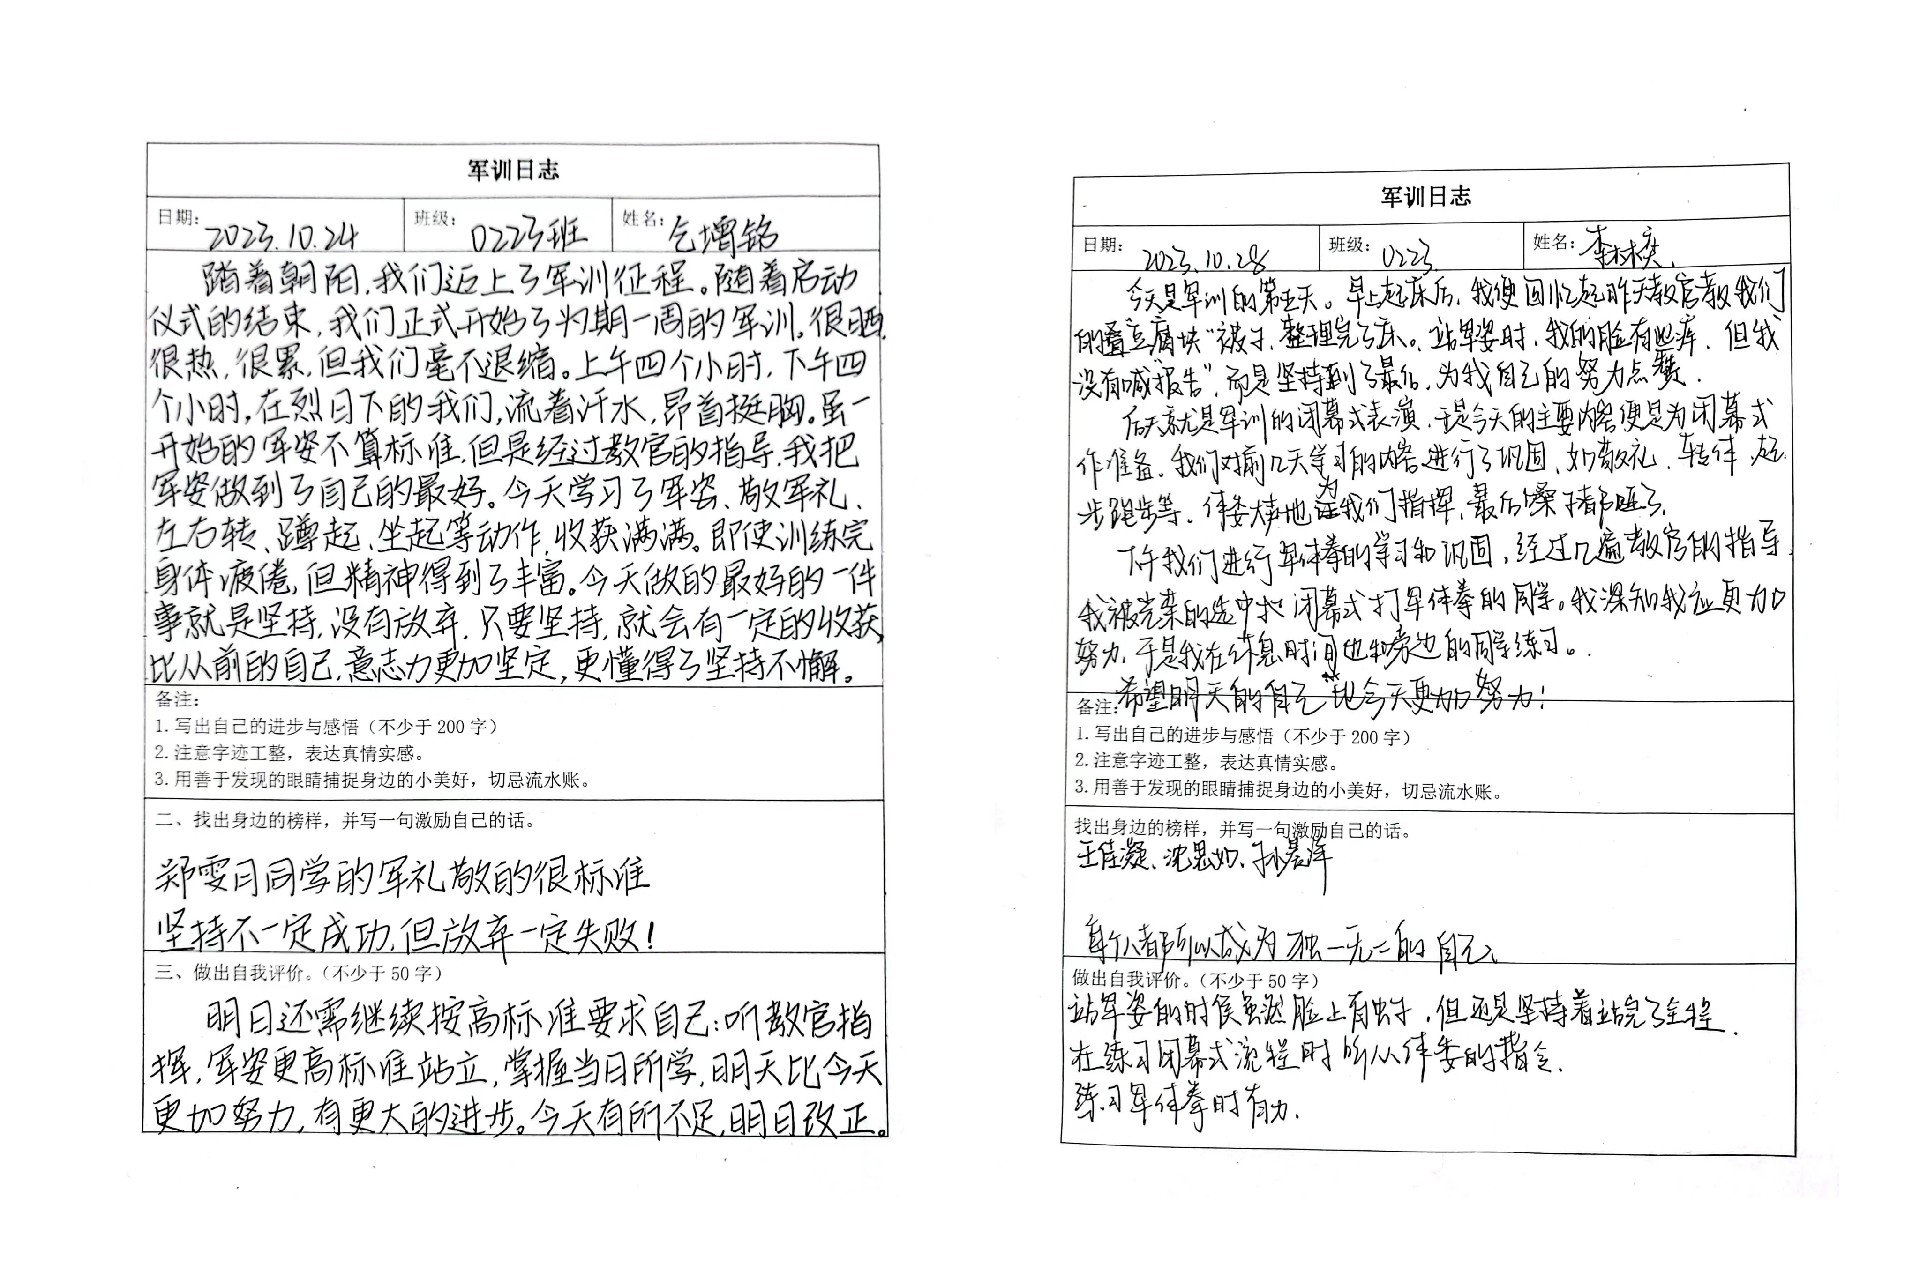 军训日志
日期： 2023.10.24 班级： 0223班 姓名： 仝增铭
踏着朝阳，我们迈上了军训征程。随着启动
仪式的结束，我们正式开始了为期一周的军训。很晒，
很热，很累，但我们毫不退缩。上午四个小时，下午四
个小时，在烈日下的我们，流着汗水，昂首挺胸。虽一
开始的军姿不算标准，但是经过教官的指导，我把
军姿做到了自己的最好。今天学习了军姿、敬军礼、
左右转、蹲起、坐起等动作，收获满满。即使训练完
身体疲倦，但精神得到了丰富。今天做的最好的一件
事就是坚持，没有放弃，只要坚持，就会有一定的收获，
比从前的自己，意志力更加坚定，更懂得了坚持不懈。
备注：
1. 写出自己的进步与感悟（不少于 200 字）
2. 注意字迹工整，表达真情实感。
3. 用善于发现的眼睛捕捉身边的小美好，切忌流水账。
二、找出身边的榜样，并写一句激励自己的话。
郑雯月同学的军礼敬的很标准
坚持不一定成功，但放弃一定失败！
三、做出自我评价。（不少于 50 字）
明日还需继续按高标准要求自己：听教官指
挥，军姿更高标准站立，掌握当日所学，明天比今天
更加努力，有更大的进步。今天有所不足，明日改正。
军训日志
日期： 2023.10.28 班级： 0223 姓名：
今天是军训的第五天。早上起床后，我便回忆起昨天教官教我们
的叠“豆腐块”被子，整理完了床。站军姿时，我的脸有些痒，但我
没有喊“报告”，而是坚持到了最后，为我自己的努力点赞。
后天就是军训的闭幕式表演，于是今天的主要内容便是为闭幕式
作准备。我们对前几天学习的内容进行了巩固，如敬礼、转体、起
步跑步等，体委大声地为我们指挥，最后嗓子都哑了。
下午我们进行军体拳的学习和巩固，经过几遍教官的指导
我被光荣的选中 闭幕式打军体拳的同学。我深知我应更加
努力，于是我在休息时间也和旁边的同学练习。
希望明天的自己比今天更加努力！
备注：
1. 写出自己的进步与感悟（不少于 200 字）
2. 注意字迹工整，表达真情实感。
3. 用善于发现的眼睛捕捉身边的小美好，切忌流水账。
找出身边的榜样，并写一句激励自己的话。
王佳凝、沈思如、孙晨洋
每个人都可以成为独一无二的自己。
做出自我评价。（不少于 50 字）
站军姿的时候虽然脸上有虫子，但还是坚持着站完了全程。
在练习闭幕式流程时听从体委的指令。
练习军体拳时有力。